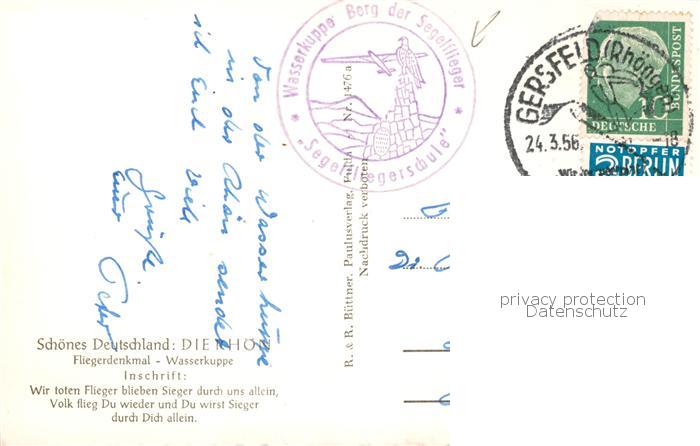 Wasserkuppe Berg der Segelflieger
* "Segelfliegerschule" *
GERSFELD (Rhön)
24.3.56
10
DEUTSCHE
BUNDESPOST
NOTOPFER
2 BERLIN
Von der Wasserkuppe
in der Rhön sendet
Euch viele
Grüße
Euer Peter
R. & R. Büttner, Paulusverlag, Fulda - Nr. 1476 a
Nachdruck verboten
privacy protection
Datenschutz
Schönes Deutschland: DIE RHÖN
Fliegerdenkmal - Wasserkuppe
Inschrift:
Wir toten Flieger blieben Sieger durch uns allein,
Volk flieg Du wieder und Du wirst Sieger
durch Dich allein.